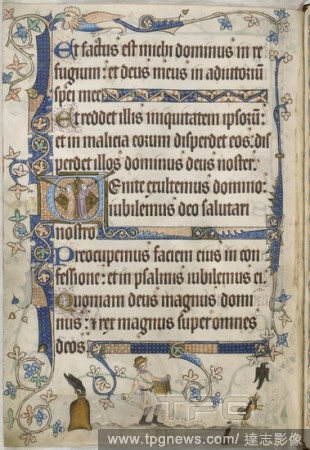 Et factus est michi dominus in re
fugium: et deus meus in adiutoriū
spei mee
Et reddet illis iniquitatem ipsorū:
et in malicia eorum disperdet eos: dis
perdet illos dominus deus noster.
Uenite exultemus domino:
iubilemus deo salutari
nostro
Preocupemus faciem eius in con
fessione: et in psalmis iubilemus ei.
Quoniam deus magnus domi
nus: et rex magnus super omnes
deos
TPG
www.tpgnews.com/ 達志影像